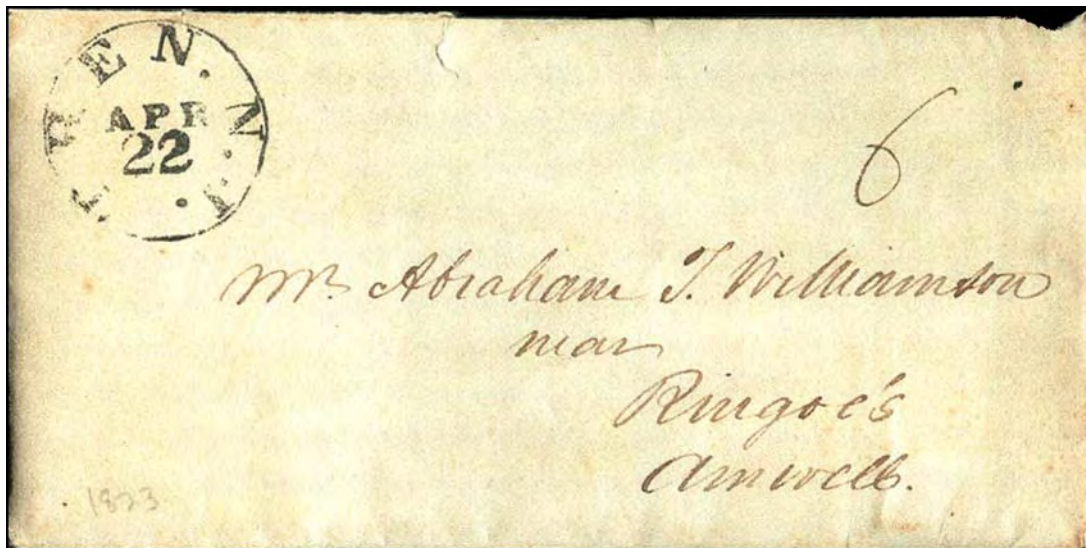 TREN. N. J.
APR
22
6
Mr. Abraham J. Williamson
near
Ringoe's
Amwell.
1823